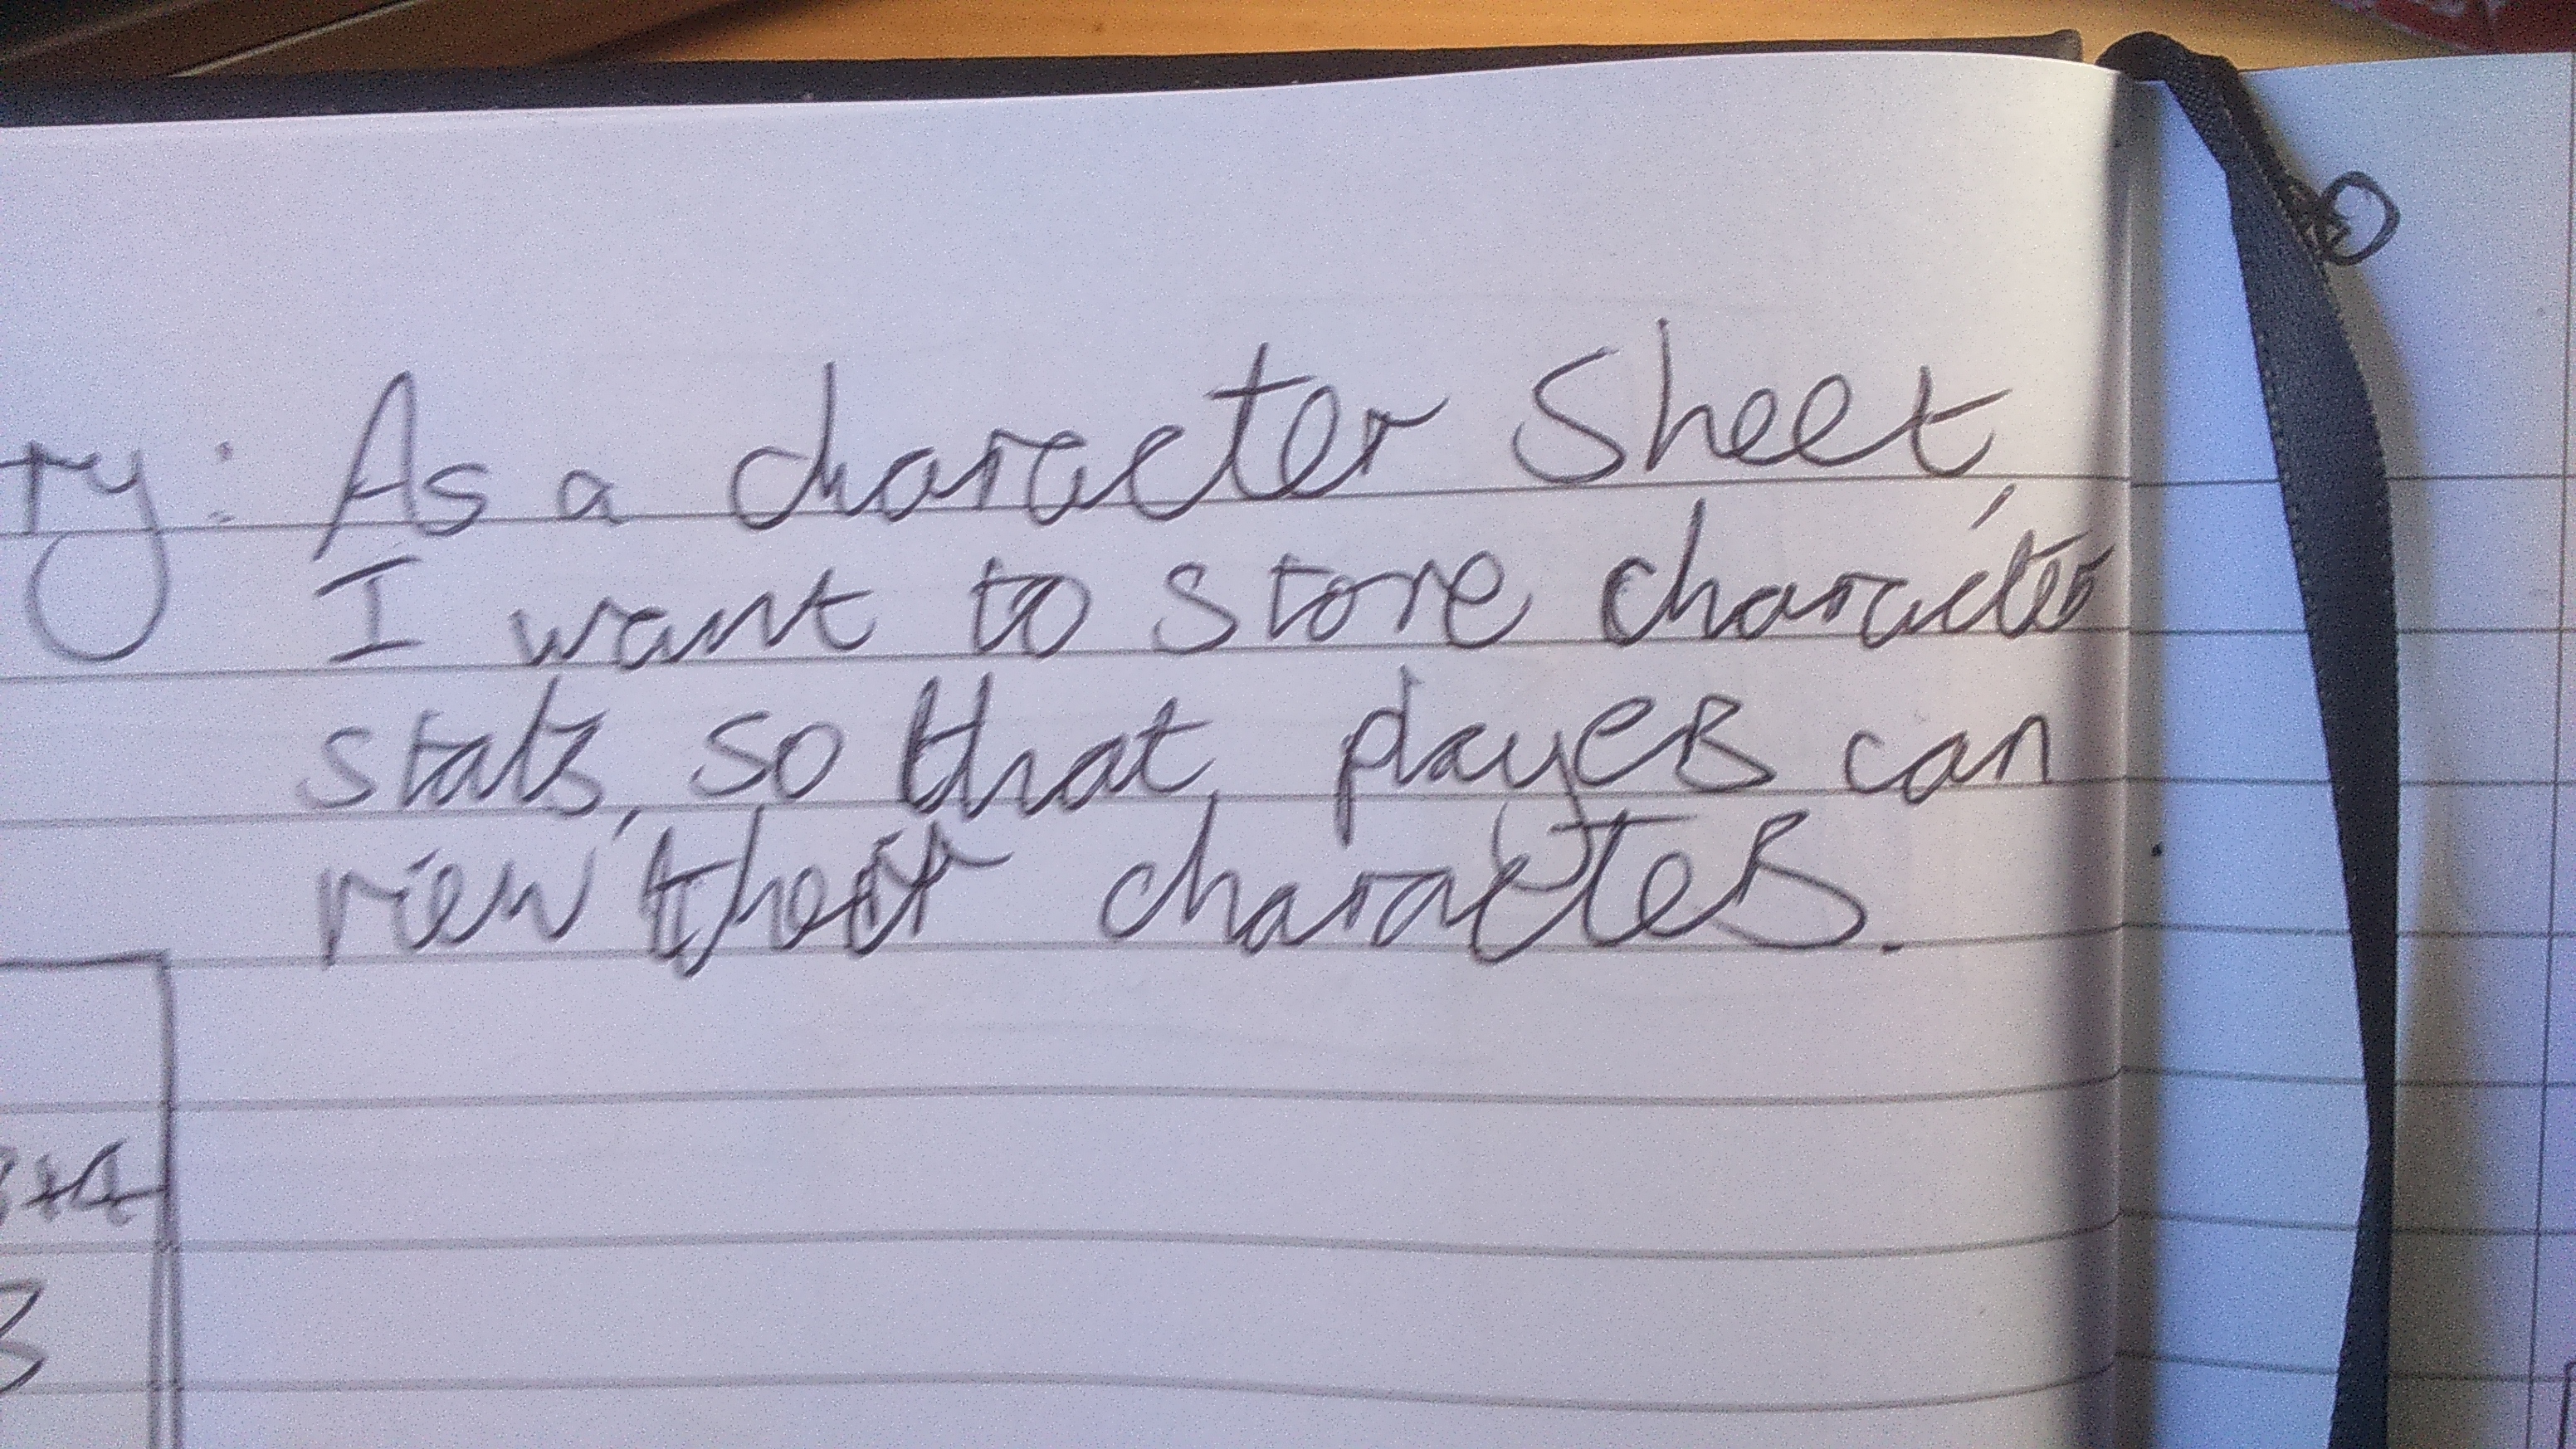 ry: As a character sheet,
I want to store character
stats, so that, players can
view their characters.